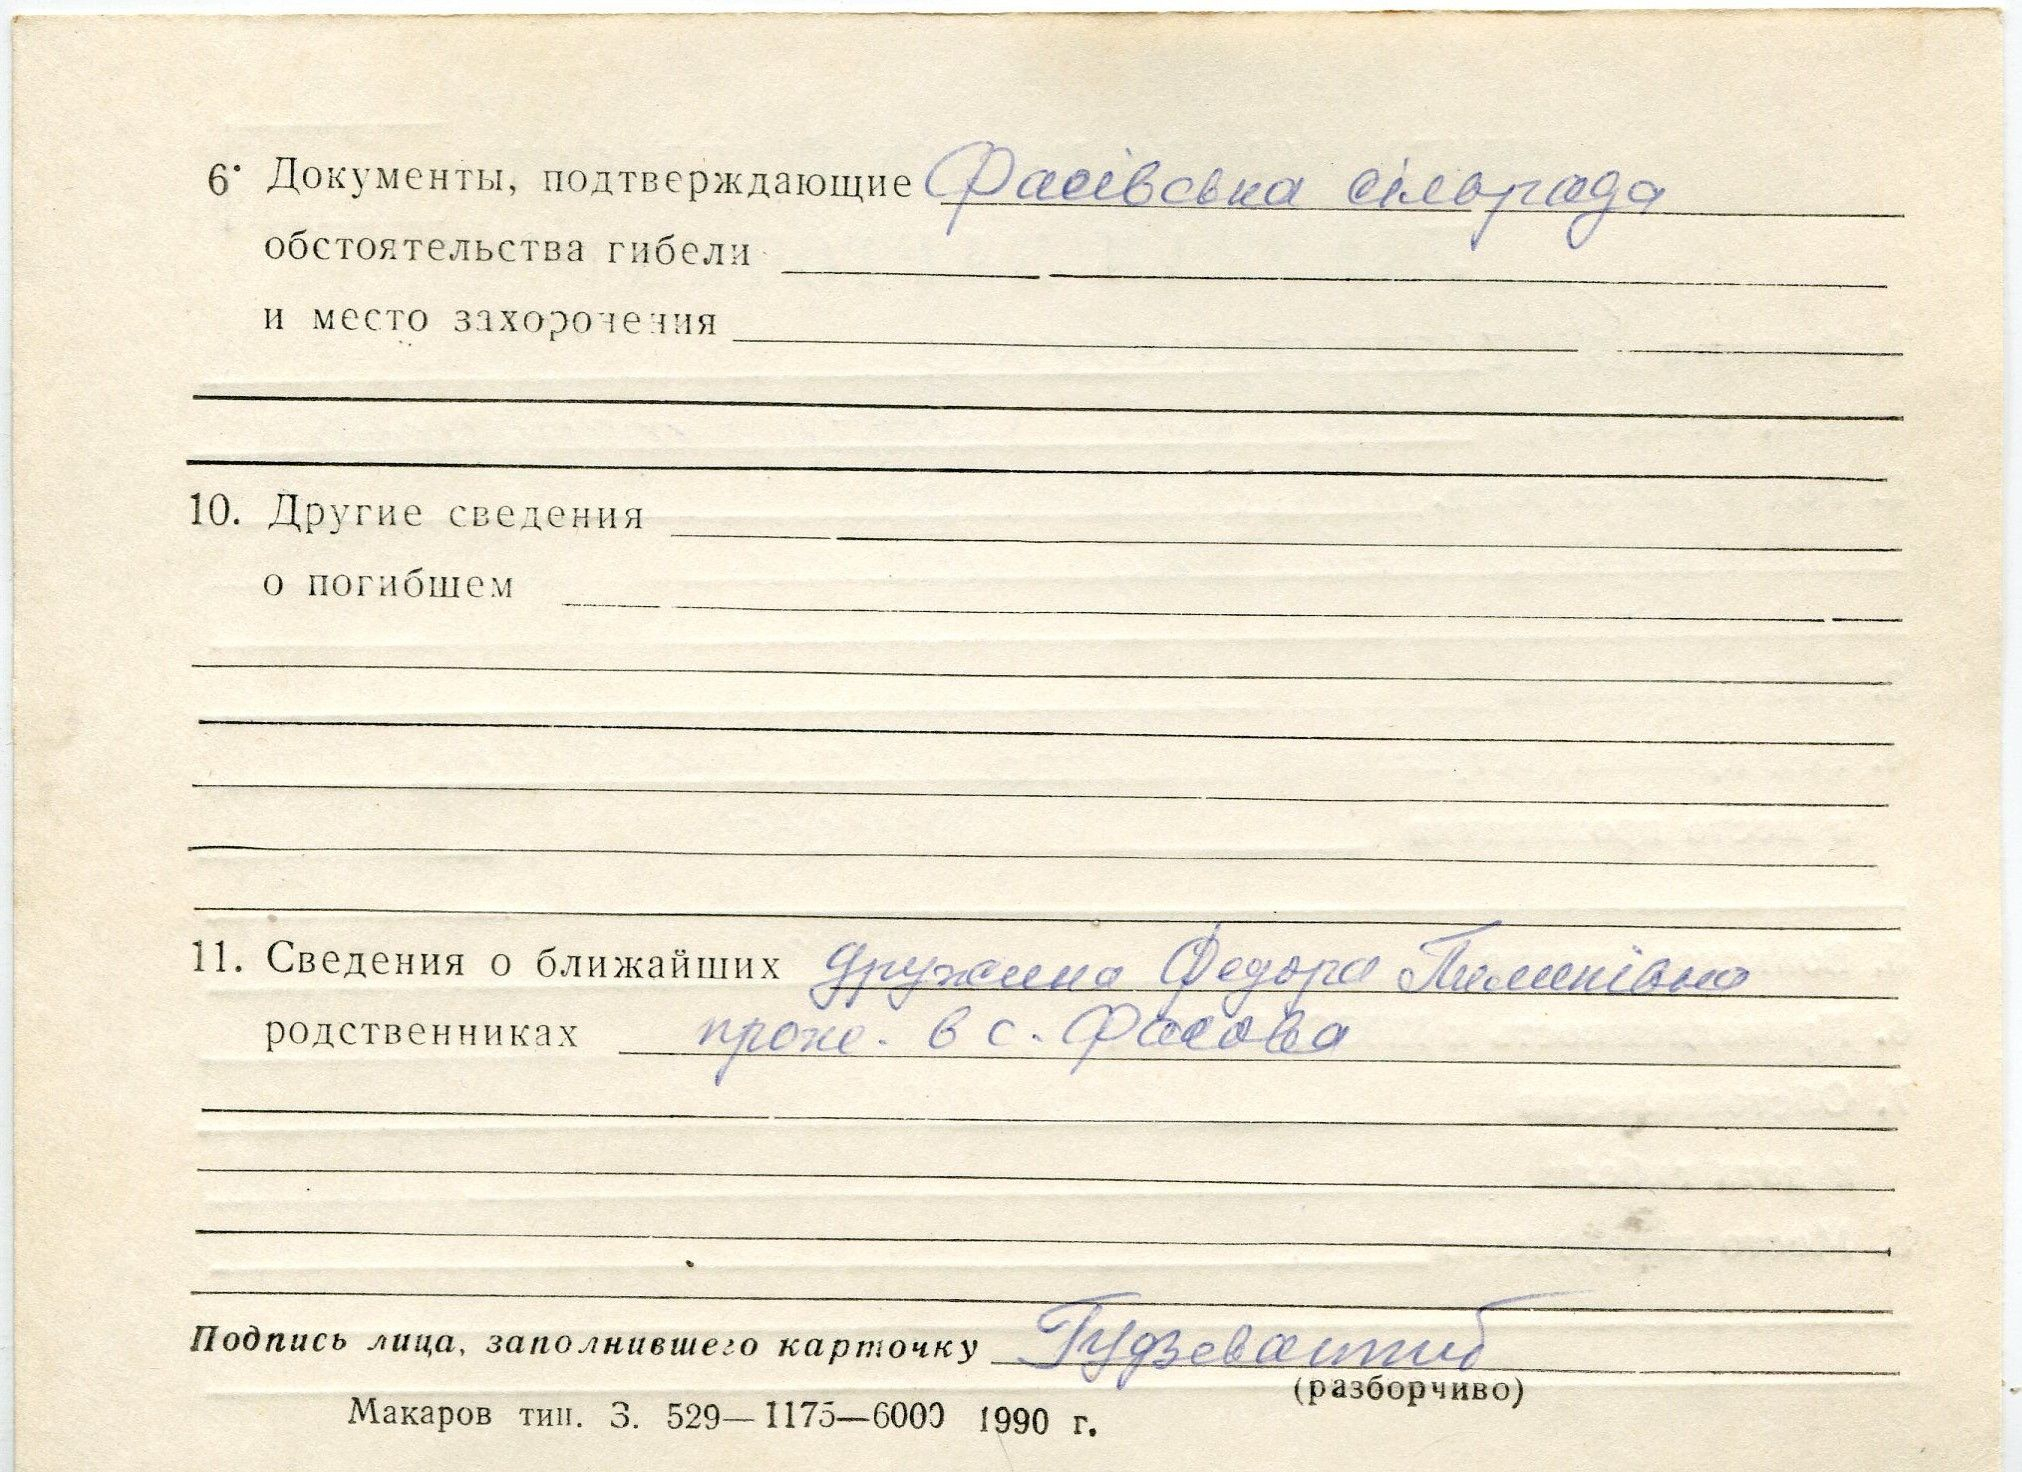 6. Документы, подтверждающие Фасівська сільрада
обстоятельства гибели
и место захоронения
10. Другие сведения
о погибшем
11. Сведения о ближайших дружина Федора Пилипівна
родственниках прож. в с. Фасова
Подпись лица, заполнившего карточку
(разборчиво)
Макаров тип. З. 529—1175—6000 1990 г.